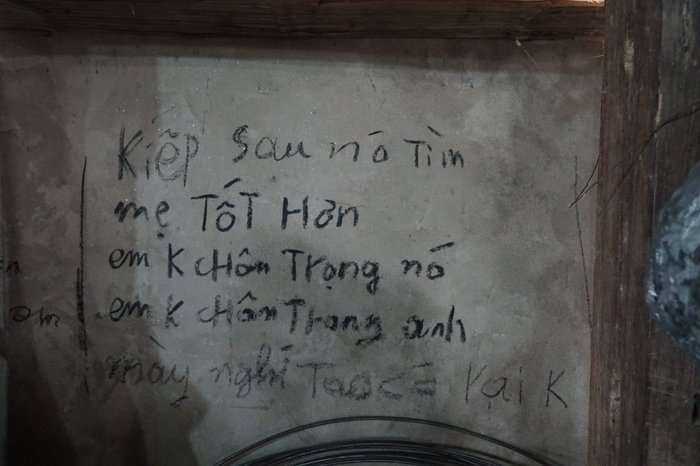 Kiếp Sau nó Tìm
mẹ TốT Hơn
em K CHân Trọng nó
em K CHân Trọng anh
mày nghĩ Tao có Vại K
om